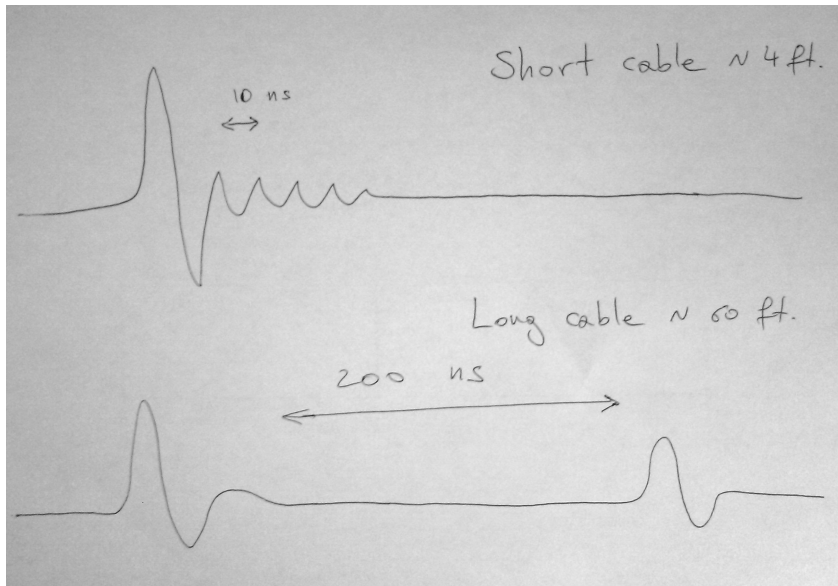 Short cable ~ 4 ft.
10 ns
Long cable ~ 60 ft.
200 ns